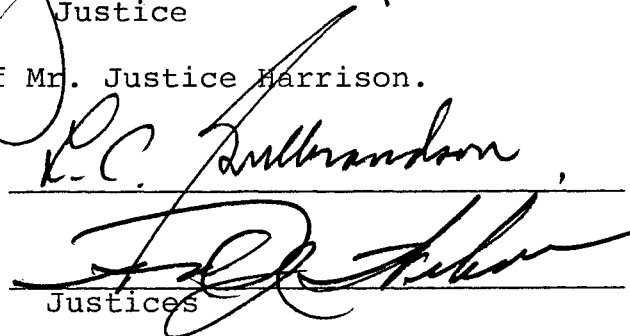 Justice
f Mr. Justice Harrison.
L. C. Gulbrandson
Justices